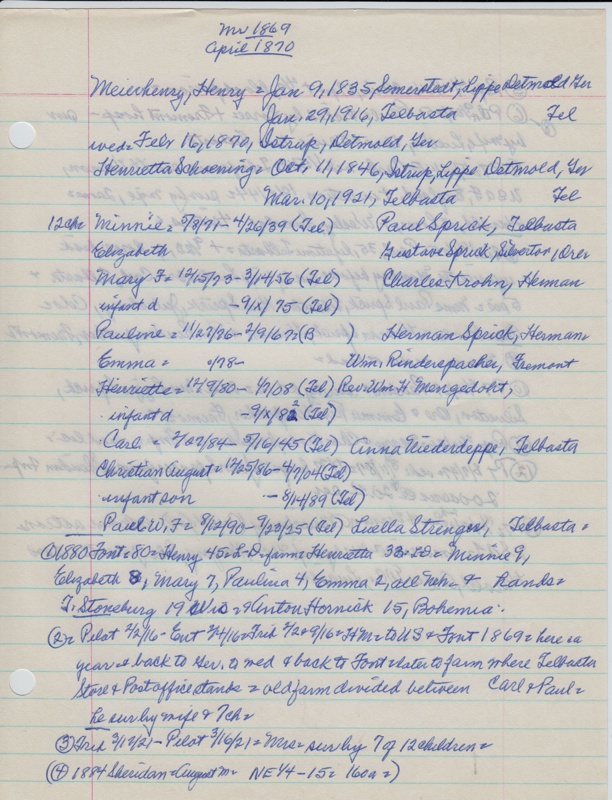 Mr 1869
April 1870
Meierhenry, Henry = Jan 9, 1835, Somerstedt, Lippe Detmold Ger
Jan. 29, 1916, Telbasta Tel
wed = Feb 16, 1870, Istrup, Detmold, Ger
Henrietta Schoening = Oct. 11, 1846, Istrup, Lippe Detmold, Ger
Mar. 10, 1921, Telbasta Tel
12ch = Minnie = 5/3/71 - 4/26/39 (Tel) Paul Sprick, Telbasta
Elizabeth Gustave Sprick, Silverton, Oreg
Mary F = 12/15/73 - 3/14/56 (Tel) Charles Krohn, Herman
infant d - 9/x/75 (Tel)
Pauline = 11/27/76 - 2/9/67 = (B ) Herman Sprick, Herman =
Emma = /78 - Wm. Rinderspacher, Fremont
Henriette = 12/9/80 - 1/7/08 (Tel) Rev. Wm H. Mengedoht,
infant d - 9/x/82 (Tel)
Carl = 2/27/84 - 5/16/45 (Tel) Anna Niederdeppe, Telbasta
Christian August = 12/25/86 - 4/7/04 (Tel)
infant son - 8/14/89 (Tel)
Paul W. F = 8/12/90 - 9/23/25 (Tel) Luella Stronger, Telbasta =
① 1880 Font = 80 = Henry 45 = L-D = farm = Henrietta 33 = LD = Minnie 9,
Elizabeth 8, Mary 7, Paulina 4, Emma 2, all Neb = & hands =
T. Stoneburg 19 Wis = & Anton Hornick 15, Bohemia =
② = Pilot 2/2/16 - Ent 2/4/16 = Trib 2/2 & 9/16 = HM = to US & Font 1869 = here a
year & back to Ger. to wed & back to Font = later to farm where Telbasta
Store & Postoffice stands = old farm divided between Carl & Paul =
he sur by wife & 7ch =
③ Trib 3/17/21 - Pilot 3/16/21 = Mrs = sur by 7 of 12 children =
④ 1884 Sheridan = August M = NE 1/4 - 15 = 160a =)